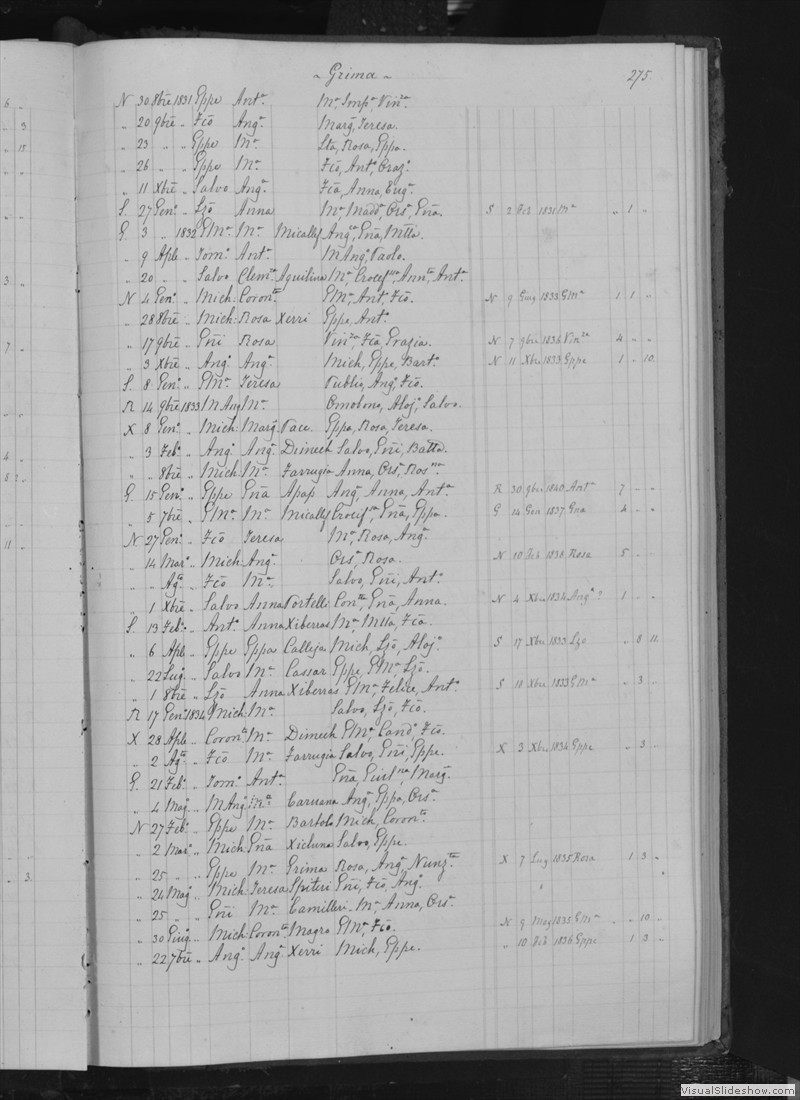 ~ Grima ~ 275.
N 30 8bre 1831 Eppe Anta Ma, Impa, Vinza
" 20 9bre " Fco Anga Marg, Teresa.
" 23 " " Eppe Ma Sta, Rosa, Eppa.
" 26 " " Eppe Ma Fco, Anta, Graza.
" 11 Xbre " Salvo Anga Fca, Anna, Euga.
S. 27 Geno " Ljo Anna Ma, Madda, Orsa, Gna. S 2 Feb 1831 Ma " 1 "
G. 3 " 1832 GMa Ma Micallef Anga, Gna, Mtta.
" 9 Aple " Tomo Anta MAngo, Paolo.
" 20 " " Salvo Clemza Aquilina Ma, Crocefssa, Annta, Anta
N 4 Geno " Mich: Coronta GMa, Anto, Fco. N 9 Giug 1833 GMa 1 1 "
" 28 8bre " Mich: Rosa Xerri Eppe, Anta
" 17 9bre " Gni Rosa Vinza, Fca, Grazia. N 7 9bre 1836 Vinza 4 " "
" 3 Xbre " Ango Anga Mich, Eppe, Barto N 11 Xbre 1833 Eppe 1 " 10.
S. 8 Geno " GMa Teresa Publio, Ango, Fco.
R 14 9bre 1833 MAng Ma Alojo, Salvo.
X 8 Geno " Mich: Marg Pace. Eppa, Rosa, Teresa.
" 3 Febo " Ango Anga Dimech Salvo, Gni, Batta.
" " 8bre " Mich: Ma Farrugia Anna, Orsa,
G 15 Geno " Eppe Gna Apap Anga, Anna, Anta R 30 9bre 1840 Anta 7 " "
" 5 7bre " GMa Ma Micallef Crocifssa, Gna, Eppa. G 14 Gen 1837 Gna 4 " "
N 27 Geno " Fco Teresa Ma, Rosa, Anga.
" 14 Maro " Mich: Anga. Orsa, Rosa. N 10 Feb 1838 Rosa 5 " "
" " Agto " Fco Ma Salvo, Gni, Anto
" 1 Xbre " Salvo Anna Portelli Conta, Gna, Anna. N 4 Xbre 1834 Anga ? 1 " "
S. 13 Febo " Anto Anna Xiberras Ma, Mtta, Fca.
" 6 Aple " Eppe Eppa Calleja Mich, Ljo, Alojo S 17 Xbre 1833 Ljo " 8 11.
" 22 Lugo " Salvo Ma Cassar Eppe, GMa, Ljo.
" 1 8bre " Ljo Anna Xiberras GMa, Felice, Anto S 10 Xbre 1833 GMa " 3 "
R 17 Geno 1834 Mich: Ma Salvo, Ljo, Fco.
X 28 Aple " Corono Ma Dimech GMa, Cando, Fco.
" 2 Agto " Fco Ma Farrugia Salvo, Gni, Eppe. X 3 Xbre 1834 Eppe " 3 "
G. 21 Febo " Tomo Anta Gna, Marg.
" 4 Mago " MAngo Caruana Anga, Eppa, Orsa.
N 27 Febo " Eppe Ma Bartolo Mich, Coronta
" 2 Maro " Mich: Gna Xicluna Salvo, Eppe.
" 25 " " Eppe Ma Grima Rosa, Anga, Nunzta X 7 Lug 1835 Rosa 1 3 "
" 24 Mago " Mich: Teresa Spiteri Gni, Fco, Ango
" 25 " " Gni Ma Camilleri Ma, Anna, Orsa.
" 30 Giugo " Mich: Coronta Magro GMa, Fco. N 9 Mag 1835 GMa " " 10 "
" 22 7bre " Ango Anga Xerri Mich, Eppe. " 10 Feb 1836 Eppe 1 3 "
VisualSlideshow.com